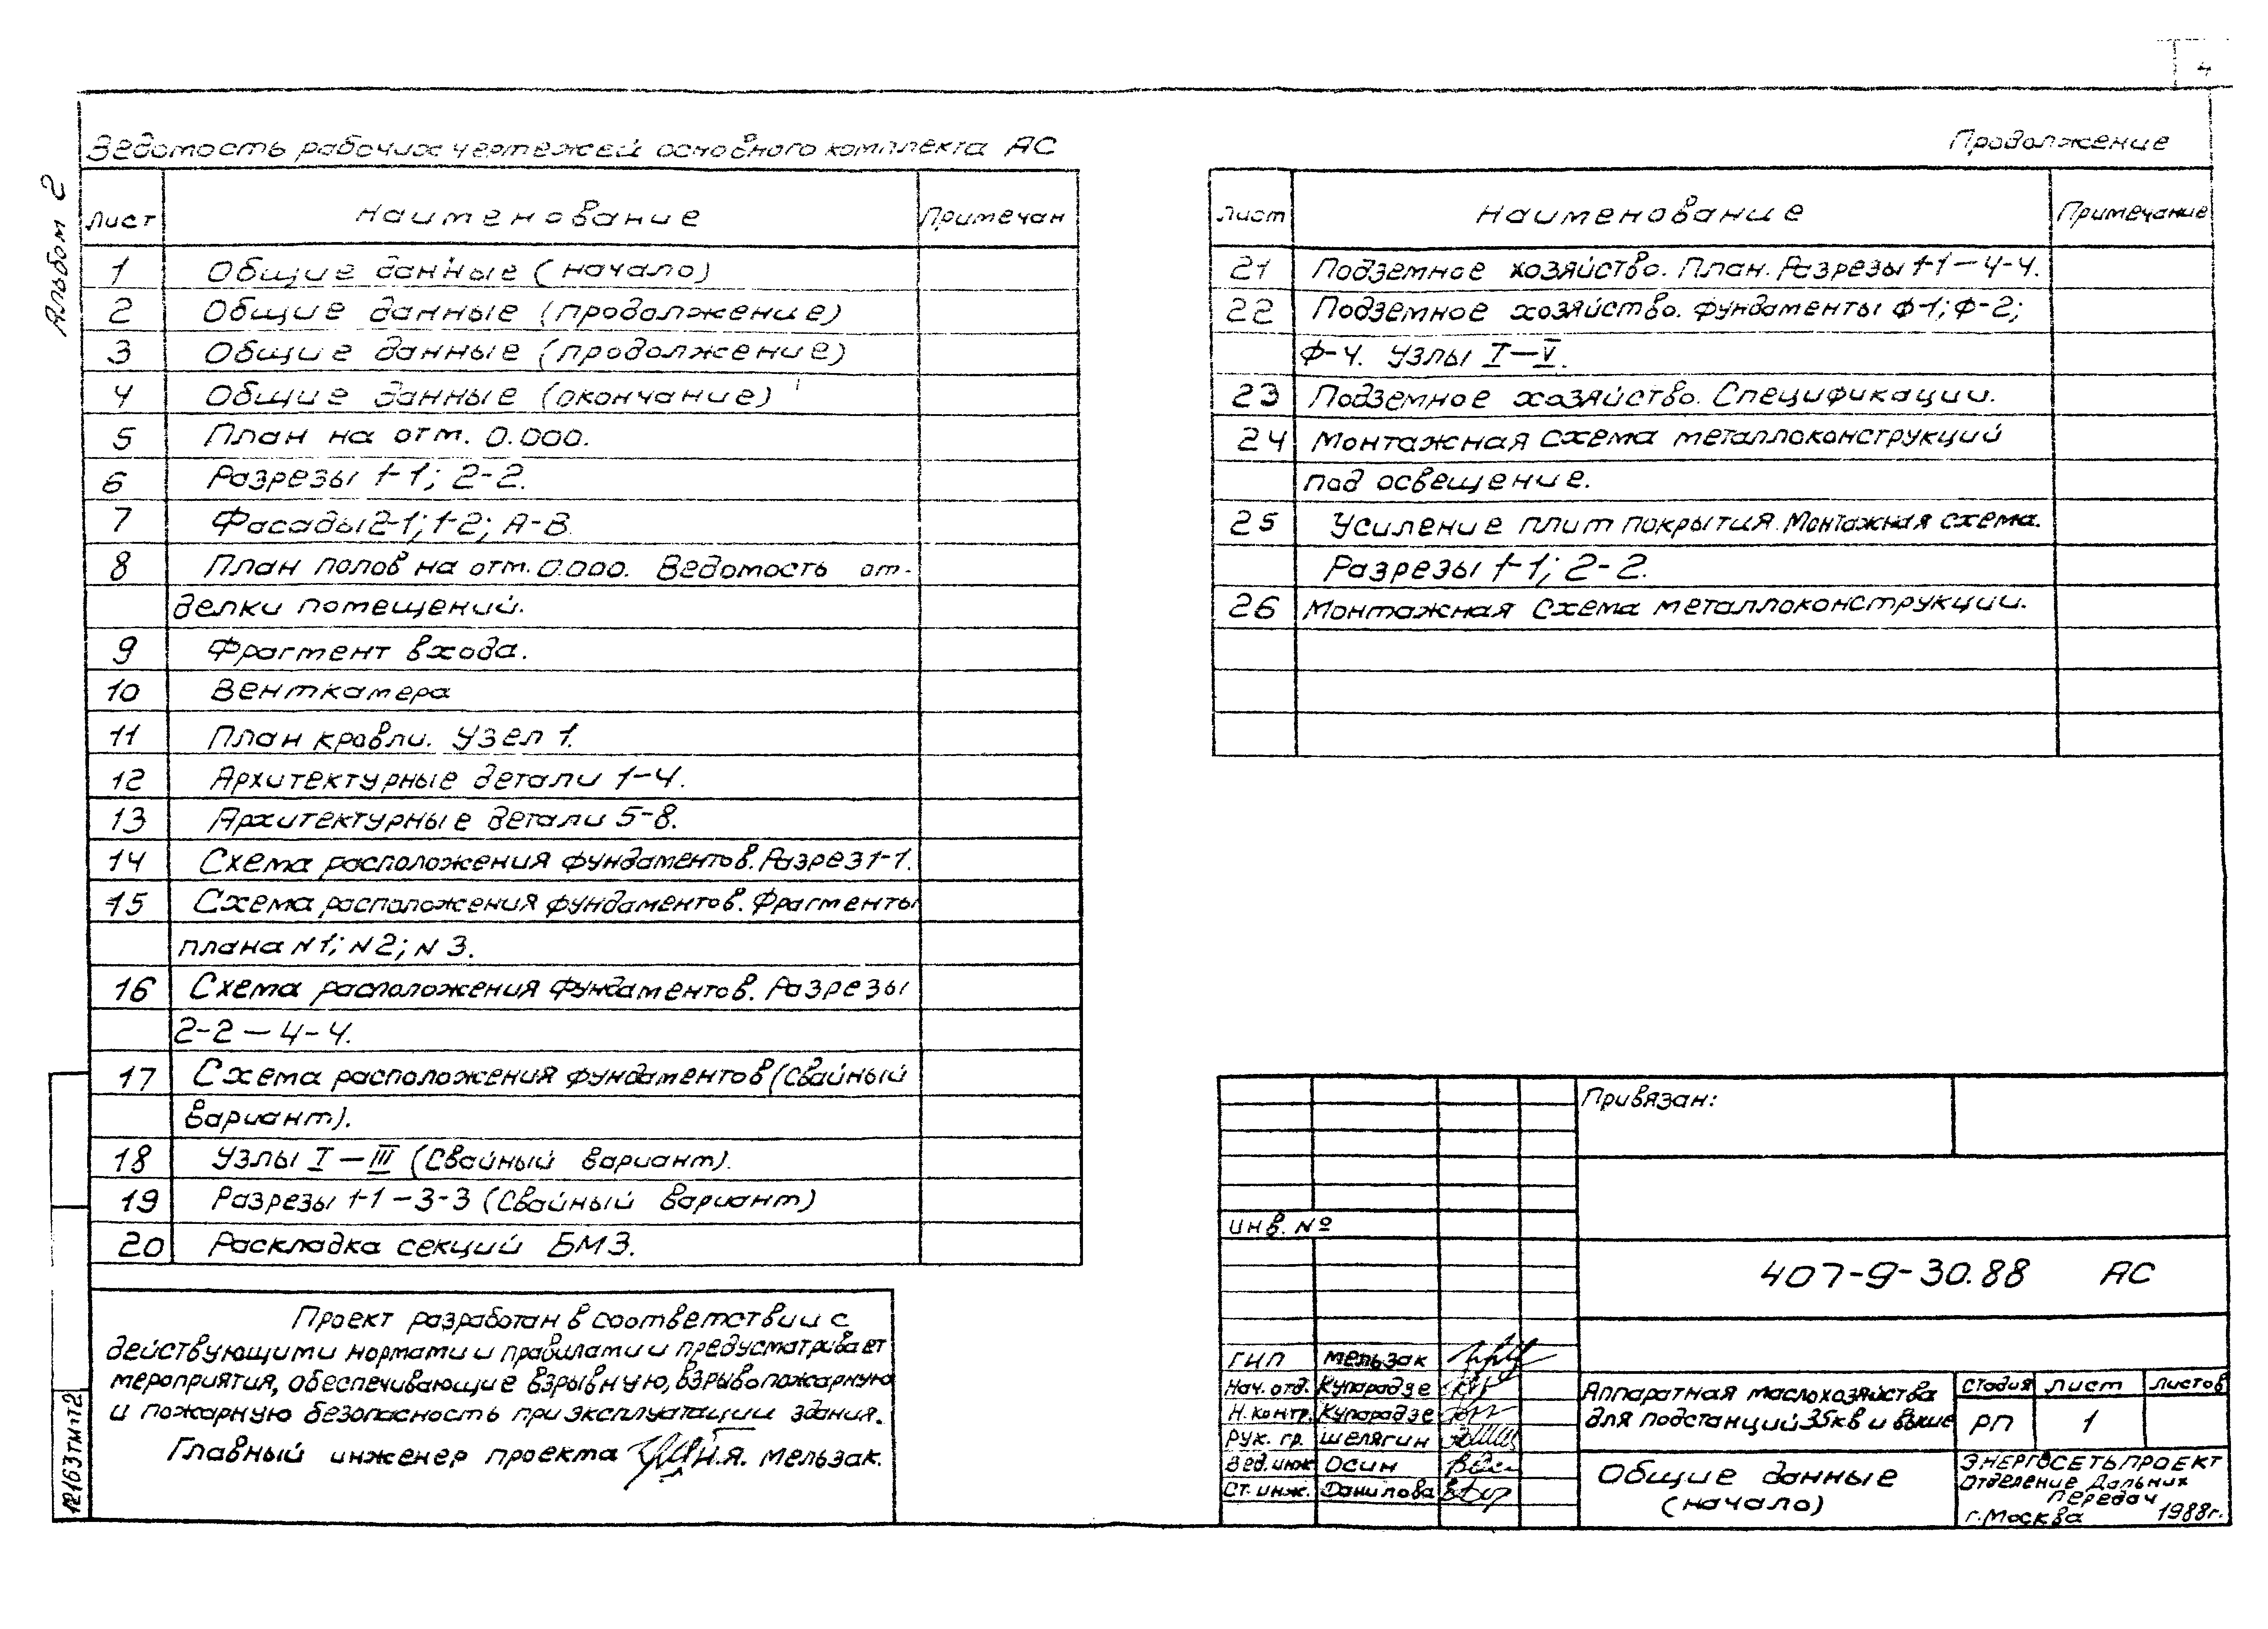 4
Альбом 2
Ведомость рабочих чертежей основного комплекта АС
Лист Наименование Примечан
1 Общие данные (начало)
2 Общие данные (продолжение)
3 Общие данные (продолжение)
4 Общие данные (окончание)
5 План на отм. 0.000.
6 Разрезы 1-1; 2-2.
7 Фасады 2-1; 1-2; А-В.
8 План полов на отм. 0.000. Ведомость от-
делки помещений.
9 Фрагмент входа.
10 Венткамера
11 План кровли. Узел 1.
12 Архитектурные детали 1-4.
13 Архитектурные детали 5-8.
14 Схема расположения фундаментов. Разрез 1-1.
15 Схема расположения фундаментов. Фрагменты
плана N1; N2; N3.
16 Схема расположения фундаментов. Разрезы
2-2 — 4-4.
17 Схема расположения фундаментов (Свайный
вариант).
18 Узлы I — III (Свайный вариант).
19 Разрезы 1-1 – 3-3 (Свайный вариант)
20 Раскладка секций БМЗ.
Проект разработан в соответствии с
действующими нормами и правилами и предусматривает
мероприятия, обеспечивающие взрывную, взрывопожарную
и пожарную безопасность при эксплуатации здания.
Главный инженер проекта И.Я. Мельзак.
12163тм-т2
Продолжение
Лист Наименование Примечание
21 Подземное хозяйство. План. Разрезы 1-1 — 4-4.
22 Подземное хозяйство. Фундаменты Ф-1; Ф-2;
Ф-4. Узлы I — V.
23 Подземное хозяйство. Спецификации.
24 Монтажная схема металлоконструкций
под освещение.
25 Усиление плит покрытия. Монтажная схема.
Разрезы 1-1; 2-2.
26 Монтажная схема металлоконструкции.
Привязан:
инв. №
407-9-30.88 АС
ГИП Мельзак
Нач. отд. Купарадзе
Н. контр. Купарадзе
Рук. гр. Шелягин
Вед. инж Осин
Ст. инж. Данилова
Аппаратная маслохозяйства
для подстанций 35кв и выше
Стадия Лист Листов
РП 1
Общие данные
(начало)
ЭНЕРГОСЕТЬПРОЕКТ
Отделение Дальних
Передач
г. Москва 1988г.